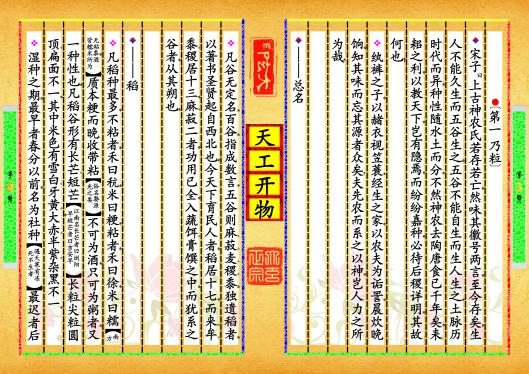 (第一 乃粒)
宋子曰上古神农氏若存若亡然味其徽号两言至今存矣生
人不能久生而五谷生之五谷不能自生而生人生之土脉历
时代而异种性随水土而分不然神农去陶唐食已千年矣耒
耜之利以教天下岂有隐焉而纷纷嘉种必待后稷详明其故
何也
纨裤之子以赭衣视笠蓑经生之家以农夫为诟詈晨炊晚
饷知其味而忘其源者众矣夫先农而系之以神岂人力之所
为哉
——总名
天工开物
凡谷无定名百谷指成数言五谷则麻菽麦稷黍独遗稻者
以著书圣贤起自西北也今天下育民人者稻居十七而来牟
黍稷居十三麻菽二者功用已全入蔬饵膏馔之中而犹系之
谷者从其朔也
——稻
凡稻种最多不粘者禾曰秔米曰粳粘者禾曰徐米曰糯【南方
无粘黍酒皆糯米所为】质本粳而晚收带粘【俗名婺源光之类】不可为酒只可为粥者又
一种性也凡稻谷形有长芒短芒【江南名长芒者曰浏阳早短芒者曰吉安早】长粒尖粒圆
顶扁面不一其中米色有雪白牙黄大赤半紫杂黑不一
湿种之期最早者春分以前名为社种【遇天寒有冻死不生者】最迟者后